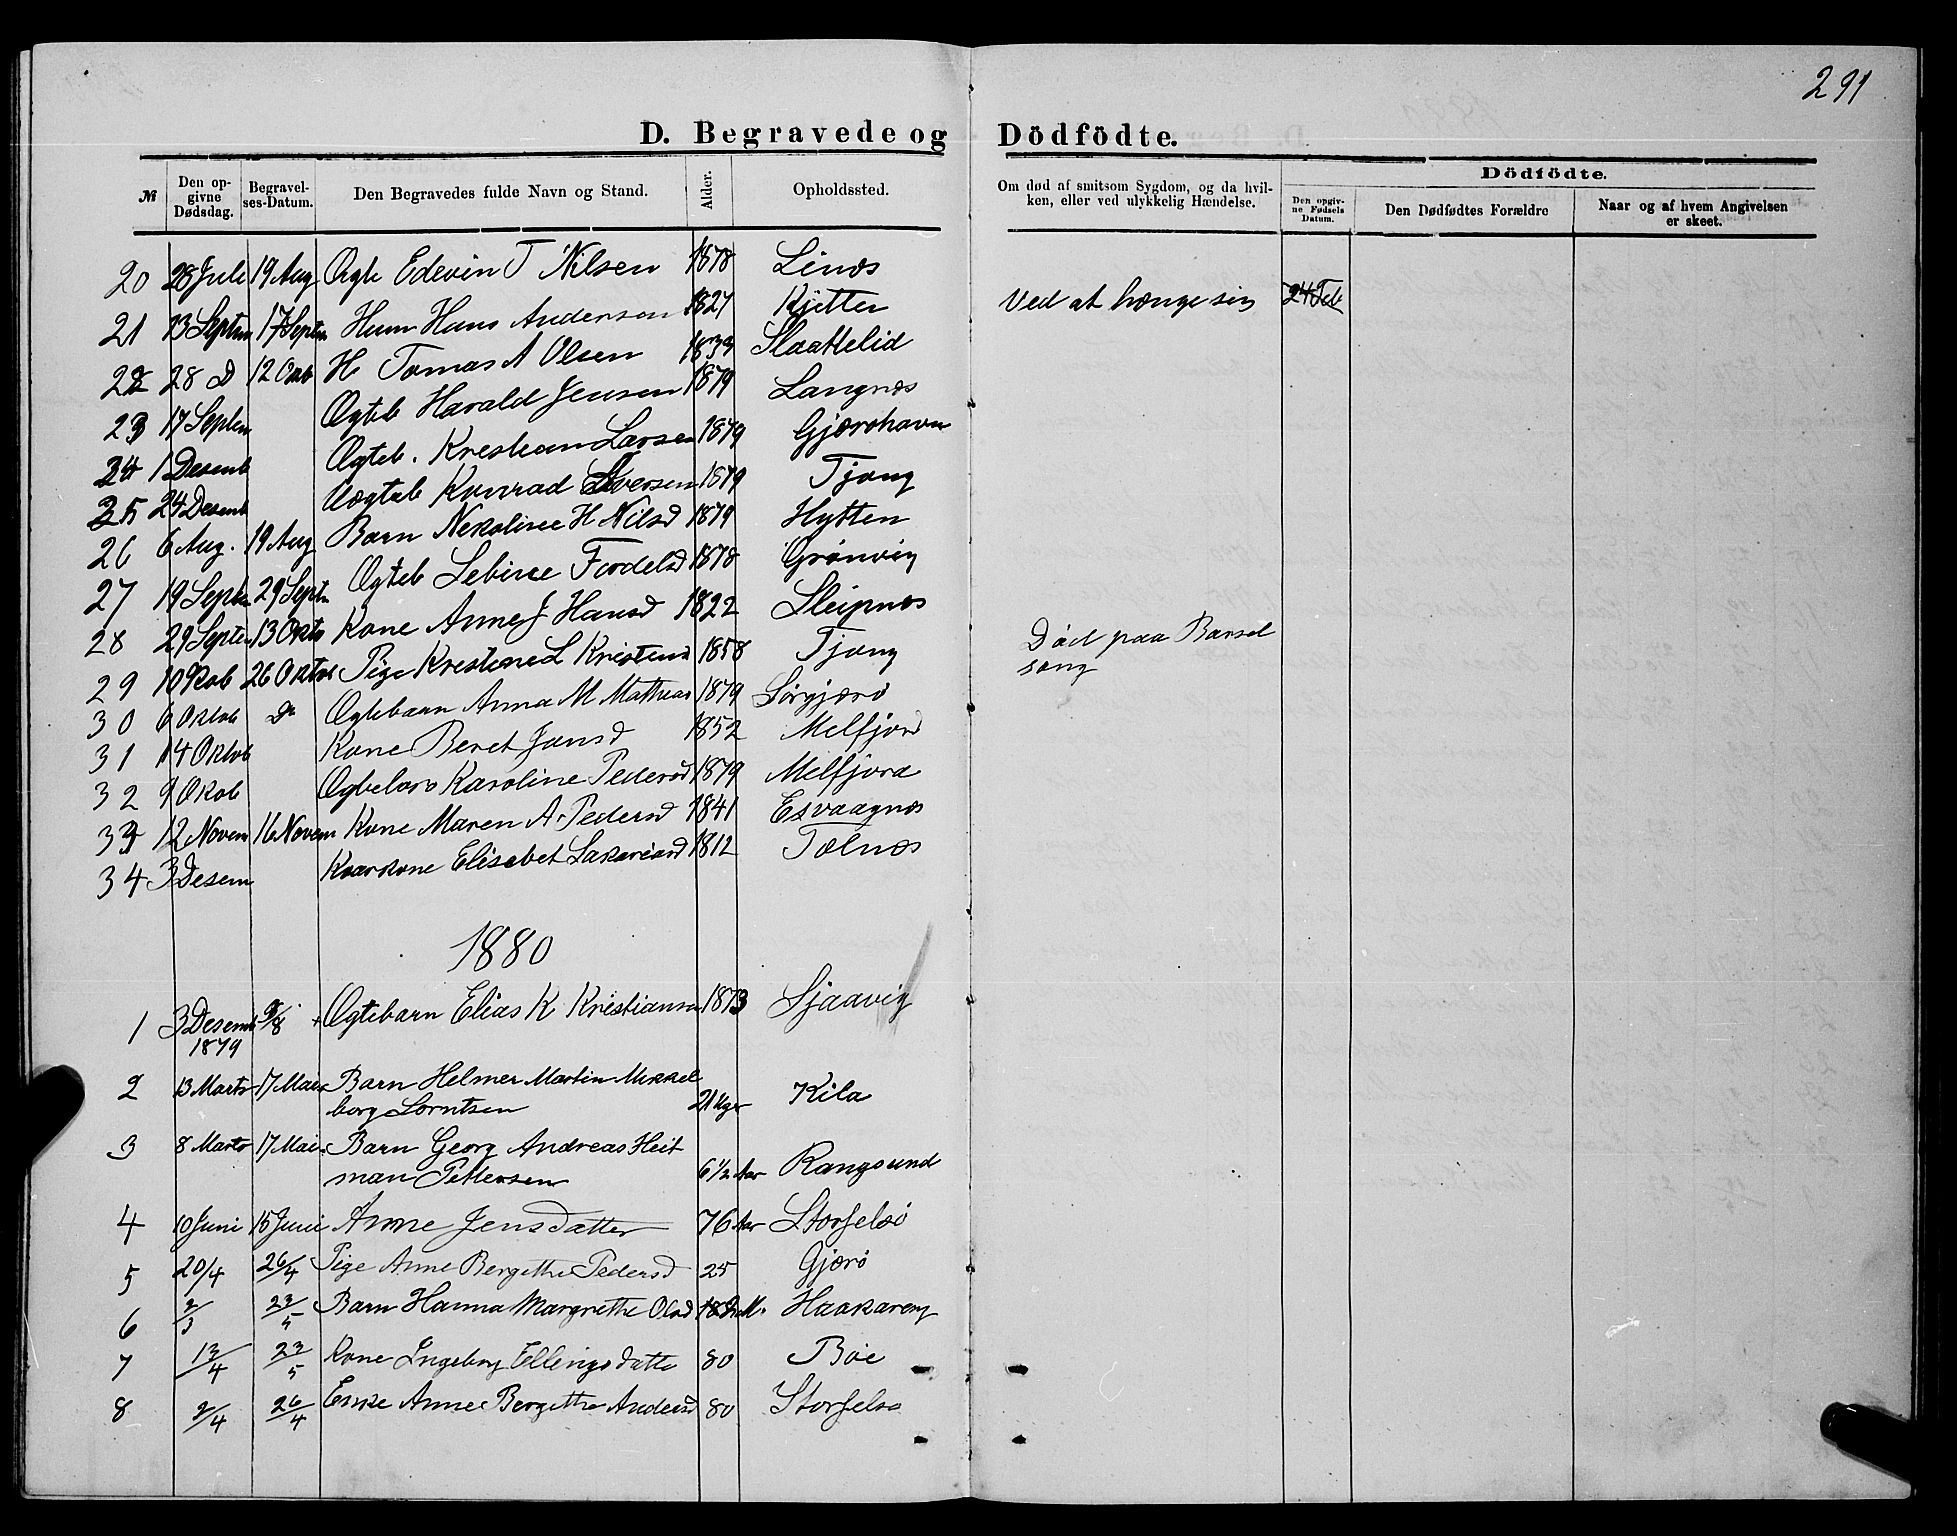 291
D. Begravede og Dödfödte.
№ Den opgivne Dødsdag. Begravelses-Datum. Den Begravedes fulde Navn og Stand. Alder. Opholdssted. Om død af smitsom Sygdom, og da hvilken, eller ved ulykkelig Hændelse. Dödfödte. Den opgivne Fødsels Datum. Den Dødfødtes Forældre Naar og af hvem Angivelsen er skeet.
20 28 Juli 19 Aug Ogte Edevin T Nilsen 1878 Linæs
21 13 Septem 17 Septem Huusm Hans Andersen 1827 Kjetten Ved at hænge sig 24 Feb
22 28 D 12 Oktb H Tomas A Olsen 1833 Slaattelid
23 17 Septem Ogteb Harald Jensen 1879 Langnæs
24 1 Desemb Ogteb. Krestian Larsen 1879 Gjærøhavn
25 24 Desemb Oegteb Konrad Iversen 1879 Tjong
26 6 Aug. 19 Aug Barn Nekoline H Nilsd 1879 Hytten
27 19 Septem 29 Septm Ogteb Lebine Fordelsd 1878 Grønvig
28 29 Septem 13 Okto Kone Anne J Hansd 1822 Sleipnæs
29 10 Okob 26 Oktob Pige Krestene L Kristens 1858 Tjong Død paa Barsel
sæng
30 6 Oktob Do Ogtebarn Anna M Mathias 1879 Sørgjærø
31 14 Oktob Kone Beret Jonsd 1852 Melfjord
32 9 Okob Ogtebarn Karoline Pedersd 1879 Melfjord
33 12 Novem 16 Novem Kone Maren A. Pedersd 1841 Esvaagnæs
34 3 Desem Kaarkone Elisabet Sakariasd 1812 Tælnæs
1880
1 3 Desemb 9/8 + Ogtebarn Elias K Kristiansen 1873 Sjaavig
1879
2 13 Marts 17 Mai Barn Helmer Martin Mikkel
borg Lorntsen 21 Uger Kila
3 8 Marts 17 Mai Barn Georg Andreas Heit
man Pettersen 6 1/2 Aar Rangsund
4 10 Juni 15 Juni Anne Jensdatter 76 Aar Storselsø
5 20/4 26/4 Pige Anne Bergithe Pedersd 25 Gjærø
6 2/3 23/5 Barn Hanna Margrethe Olsd M. Haakareng
7 13/4 23/5 Kone Ingeborg Ellingsdatte 80 Bøe
8 2/4 26/4 Enke Anne Bergitthe Andersd 80 Storselsø